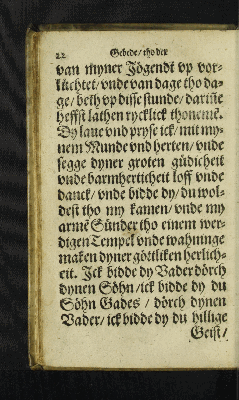 22 Gebede / tho der
van myner Jögendt vp vor-
lüchtet / vnde van dage tho da-
ge / beth vp disse stunde / darinē
heffst lathen rycklick thonemē.
Dy laue vnd pryse ick / mit my-
nem Munde vnd herten / vnde
segge dyner groten güdicheit
vnde barmherticheit loff vnde
danck / vnde bidde dy / du wol-
dest tho my kamen / vnde my
armē Sünder tho einem wer-
digen Tempel vnde wahninge
maken dyner göttliken herlich-
eit. Ick bidde dy Vader dörch
dynen Söhn / ick bidde dy du
Söhn Gades / dörch dynen
Vader / ick bidde dy du hillige
Geist /